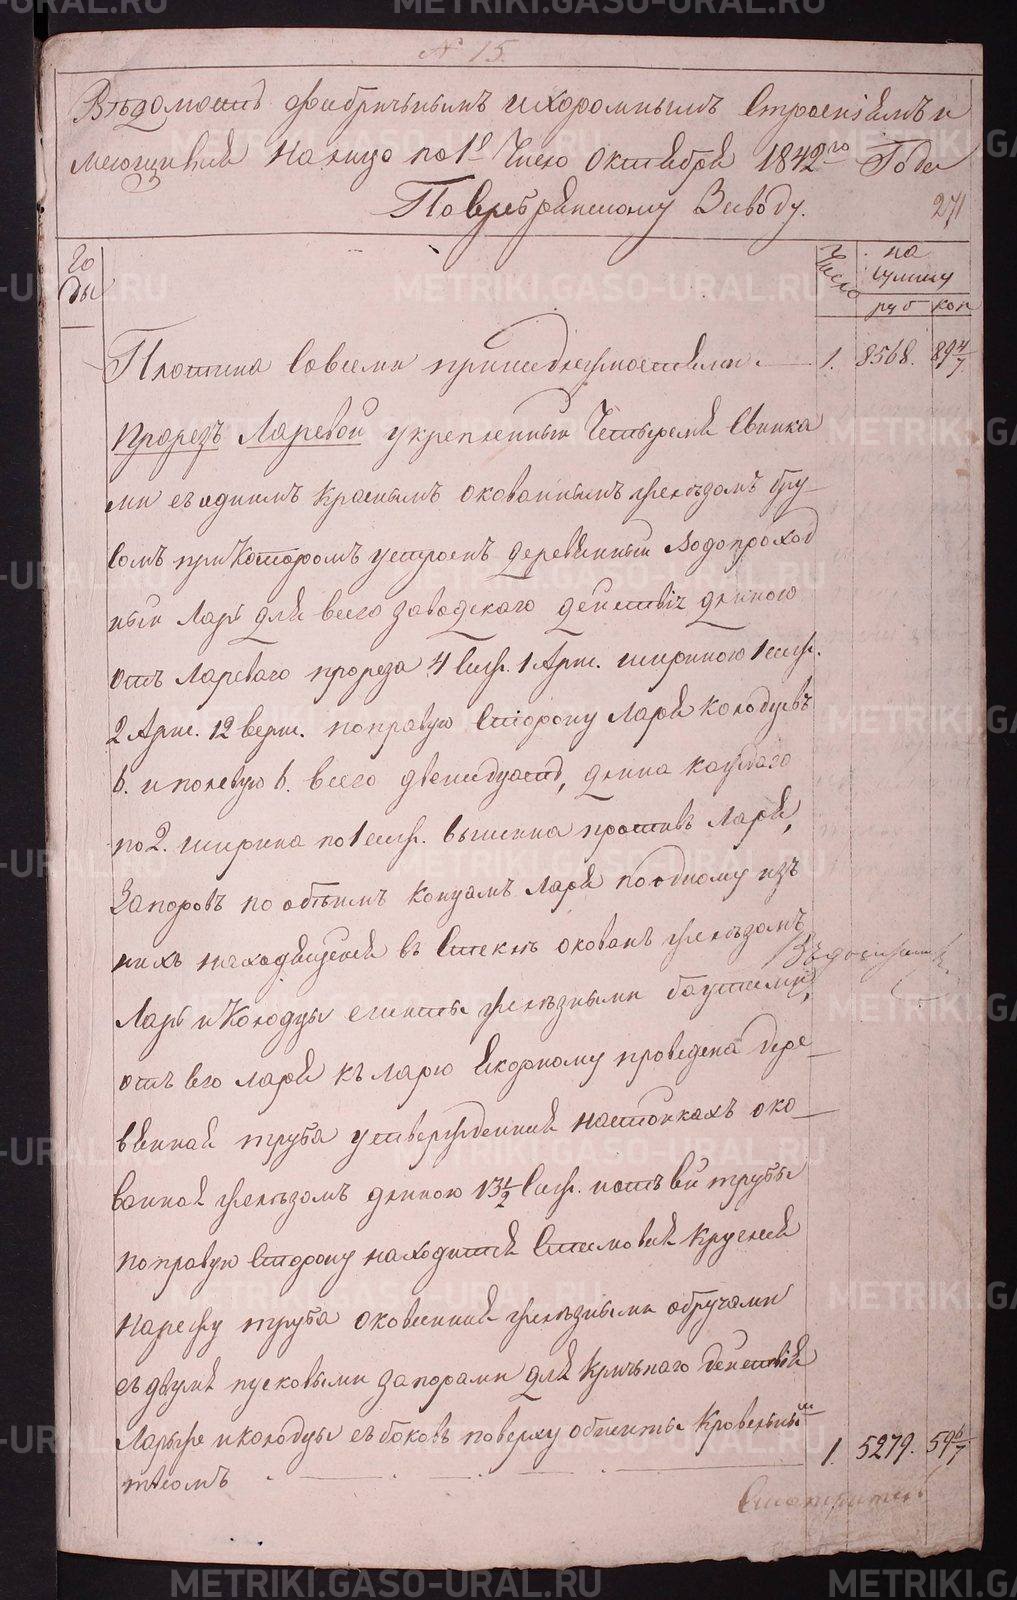 № 15.
Вѣдомость фабричнымъ и хоромнымъ Строеніямъ и
меющимся На лицо по 1е Число Октября 1842го Года
По Серебрянскому Заводу.
271
Го
ды
Число
на
сумму
руб коп
Плотина Совсеми принадлежностями 1. 8568. 89 4/7
Прорезъ Ларевой укрепленный Четырмя Свинка
ми съ однимъ Краснымъ окованнымъ железомъ бру
сомъ при Которомъ устроенъ деревянный Водопроход
ный Ларь для всего заводскаго действія длиною
отъ Лареваго прореза 4 саж. 1 Арш. шириною 1 саж.
2 Арш. 12 верш. по правую Сторону Ларя колодцевъ
6. и по левую 6. всего двенадцать, длина каждаго
по 2. ширина по 1 саж. вышина противъ Ларя,
Запоровъ по обеимъ концамъ Ларя по одному изъ
нихъ находящейся въ Стене окованъ железомъ
Ларь и Колодцы сшиты железными баутами,
отъ сего ларя къ ларю Якорному проведена дере
вянная труба утвержденная на стойкахъ око
ванная железомъ длиною 13 1/2 саж. и отъ ей трубы
по правую Сторону находится Становая Круглая
на режу труба окованная железными обручами
съ двумя пусковыми запорами для Кричнаго действія
Ларь же и колодцы съ боковъ поверху обшиты Кровельным
тесомъ 1. 5279. 59 6/7